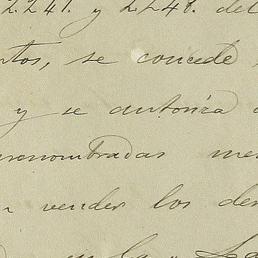 2.241. y 2248. del
tos, se concede
y se autoriza
renombradas me
n vender los der
en la y